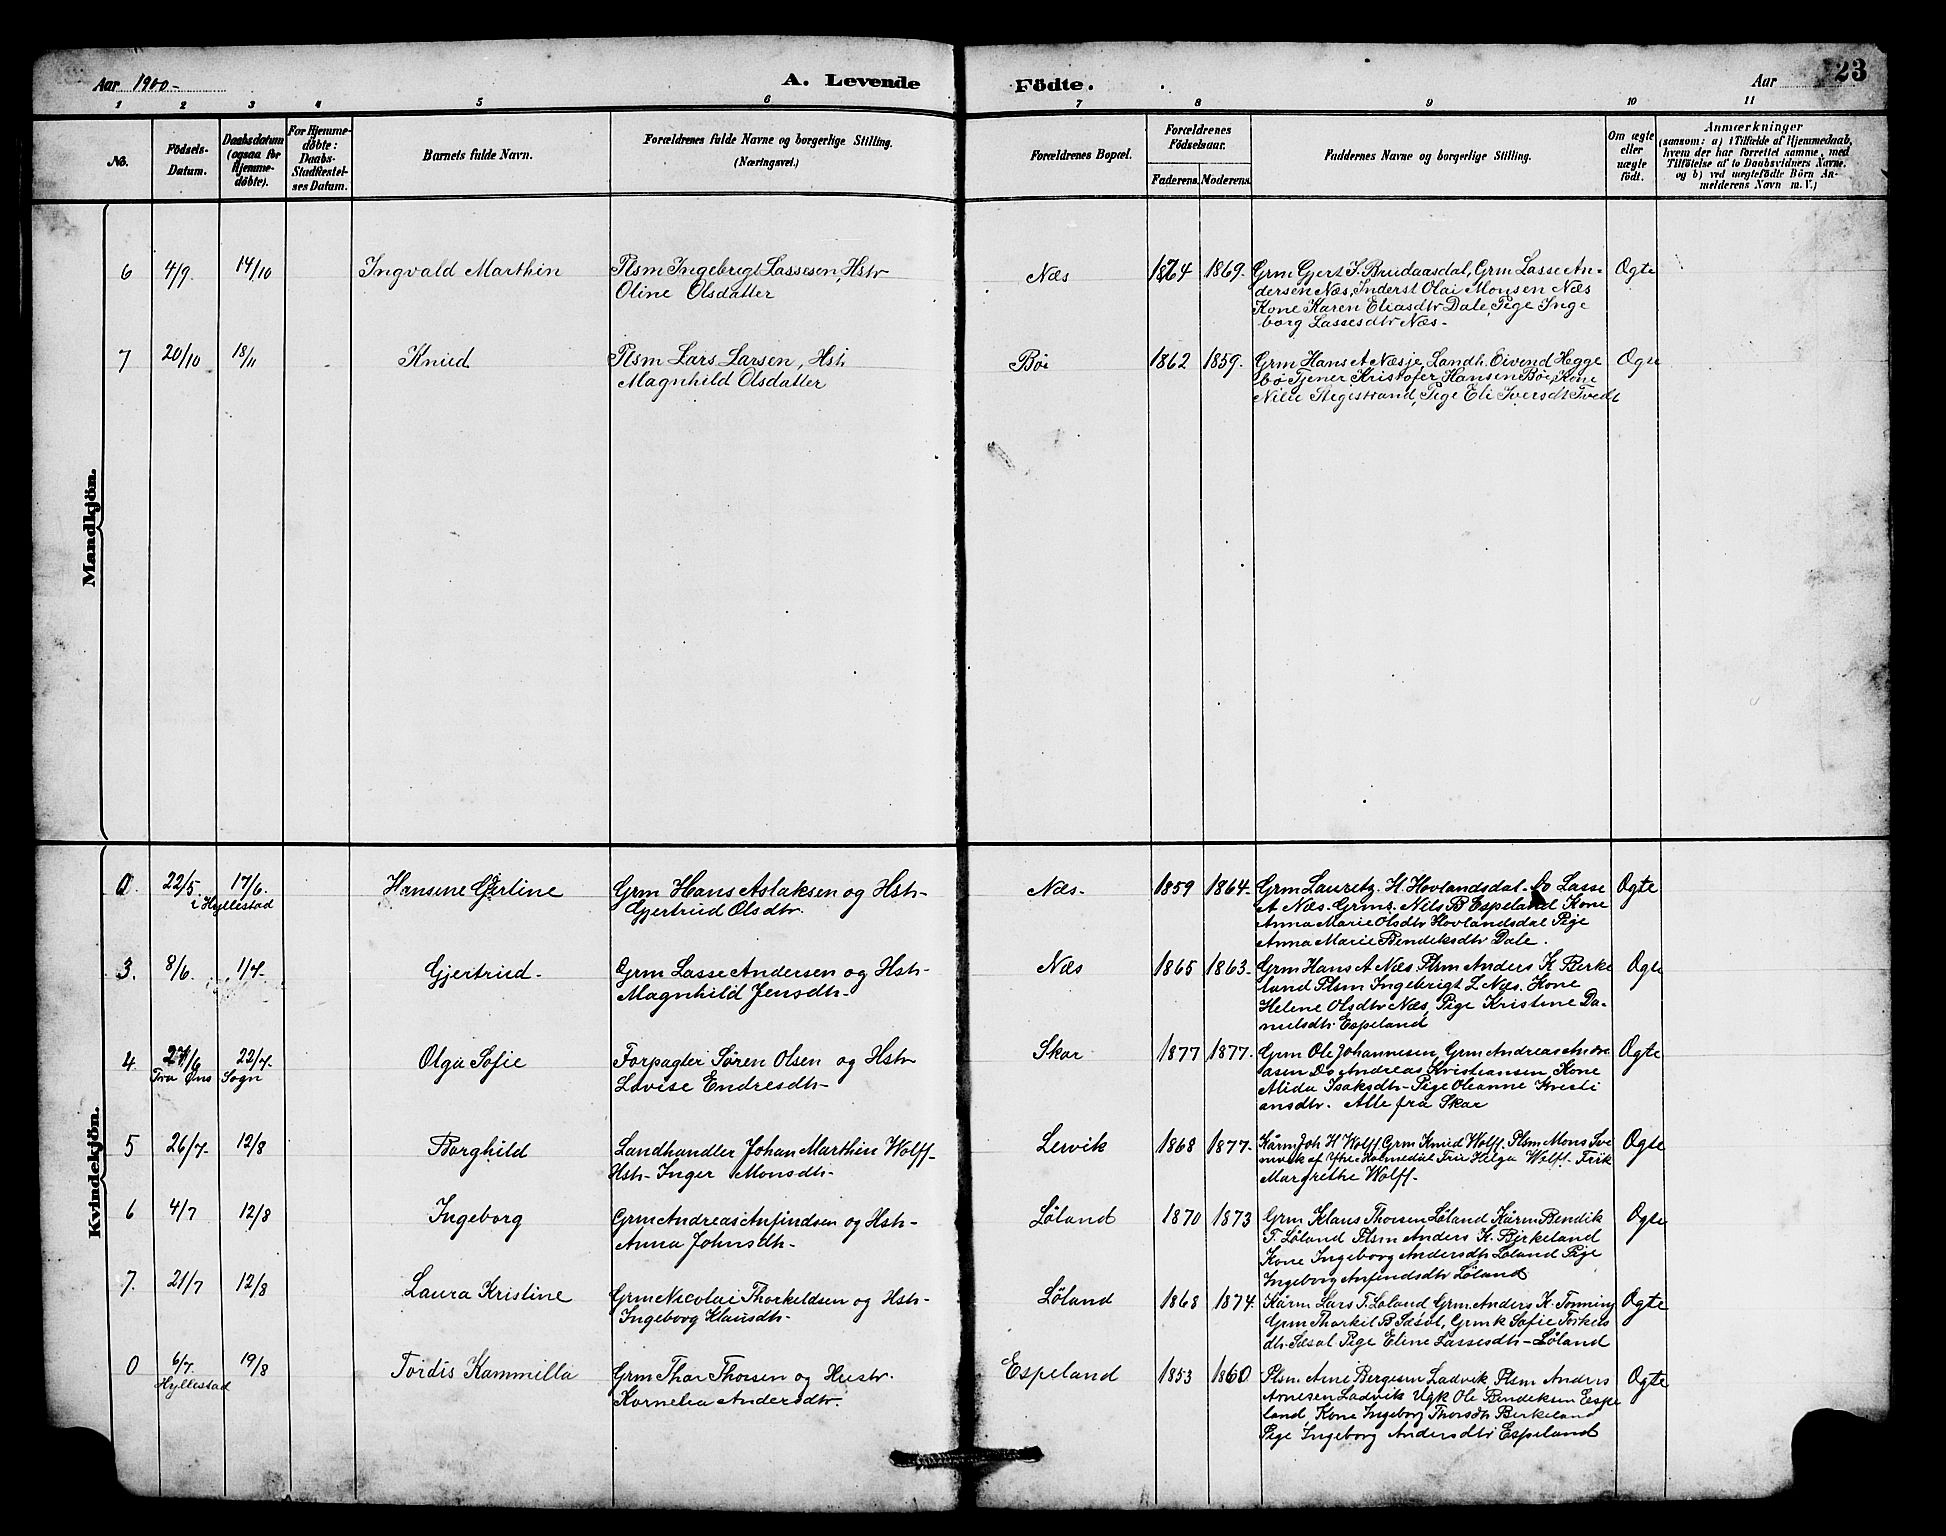 Aar 1900- A. Levende Födte. Aar 23
1 2 3 4 5 6 7 8 9 10 11
No. Födsels-Datum. Daabsdatum (ogsaa for Hjemme-døbte). For Hjemme-døbte: Daabs-Stadfæstel-ses Datum. Barnets fulde Navn. Forældrenes fulde Navne og borgerlige Stilling. (Næringsvei.) Forældrenes Bopæl. Forældrenes Födselsaar. Faderens. Moderens. Faddernes Navne og borgerlige Stilling. Om ægte eller uægte födt. Anmærkninger
(saasom: a) i Tilfælde af Hjemmedaab,
hvem der har forrettet samme, med
Tilföielse af to Daabsvidners Navne,
og b) ved uægtefödte Börn An-
melderens Navn m. V.)
Mandkjön.
6 4/9. 14/10 Ingvald Marthin Plsm Ingebrigt Lassesen, Hstr Næs 1874 1869. Grm Gjert J. Brudaasdal, Grm Lasse An- Ægte
Oline Olsdatter dersen Næs, Inderst Olai Monsen Næs
Kone Karen Eliasdtr Dale, Pige Inge
borg Lassesdtr Næs-
7 20/10 18/11 Knud Plsm Lars Larsen, Hstr Bøi 1862 1859. Grm Hans A Næsje, Landh. Eivend Hegge Ægte
Magnhild Olsdatter bø Tjener Kristofer Hansen Bøe, Kone
Stegestrand, Pige Eli Iversdt Tvedt
Kvindekjön.
0. 22/5. 17/6. Hansine Gjertine Grm Hans Aslaksen og Hstr- Næs- 1859 1864- Grm Lauretz. H. Hovlandsdal- Do Lasse Ægte
i Hyllestad Gjertrud Olsdtr. A Næs. Grms. Nils B Espeland Kone
Anna Marie Olsdtr Hovlandsdal Pige
Anna Marie Bendiksdtr Dale.
3. 8/6. 1/7- Gjertrud- Grm Lasse Andersen og Hstr- Næs 1865 1863- Grm Hans A Næs. Plsm Anders K Berke Ægte
Magnhild Jensdtr- land Plsm Ingebrigt L Næs. Kone
Helene Olsdtr Næs, Pige Kristine Da-
nielsdtr Espeland
4 /6 22/7- Olga Sofie Forpagter Søren Olsen og Hstr Skar 1877 1877. Grm Ole Johannesen, Grm Andreas Andre Ægte
Sogn Lovise Endresdtr- asen Do Andreas Kristiansen, Kone
Alida Isaksdtr- Pige Oleanne Kristi
ansdtr. Alle fra Skar
5 26/7- 12/8 Borghild Landhandler Johan Marthin Wolff- Lervik 1868 1877- Kårm Joh H Wolff Grm Knud Wolff. Plsm Mons Sve Ægte
Hstr- Inger Monsdtr- af Ytre Holmedal Fru Helga Wolff- Frøk
Margrethe Wolff-
6 4/7 12/8 Ingeborg Grm Andreas Anfindsen og Hstr- Løland 1870 1873 Grm Klaus Thorsen Løland Kårm Bendik Ægte
Anna Johnsdtr- T. Løland Plsm Anders K. Birkeland
Kone Ingeborg Andersdtr Løland Pige
Ingeborg Anfindsdtr Løland
7. 21/7 12/8 Laura Kristine Grm Nicolai Thorkildsen og Hstr- Løland 1868 1874. Kårm Lars T. Løland Grm Anders K. Tonning Ægte
Ingeborg Klausdtr- Grm Thorkil B Sæsol, Grmk Sofie Torkils
dtr Sæsol Pige Eline Lassesdtr- Løland
0 6/7. 19/8 Tordis Kammilla Grm Thor Thorsen og Hustr. Espeland 1853 1860 Plsm Arne Bergesen Ladvik Plsm Anders Ægte
Hyllestad Kornelia Andersdtr. Arnesen Ladvik Ugk Ole Bendiksen Espe
land, Kone Ingeborg Thorsdtr Birkeland
Pige Ingeborg Andersdtr Espeland